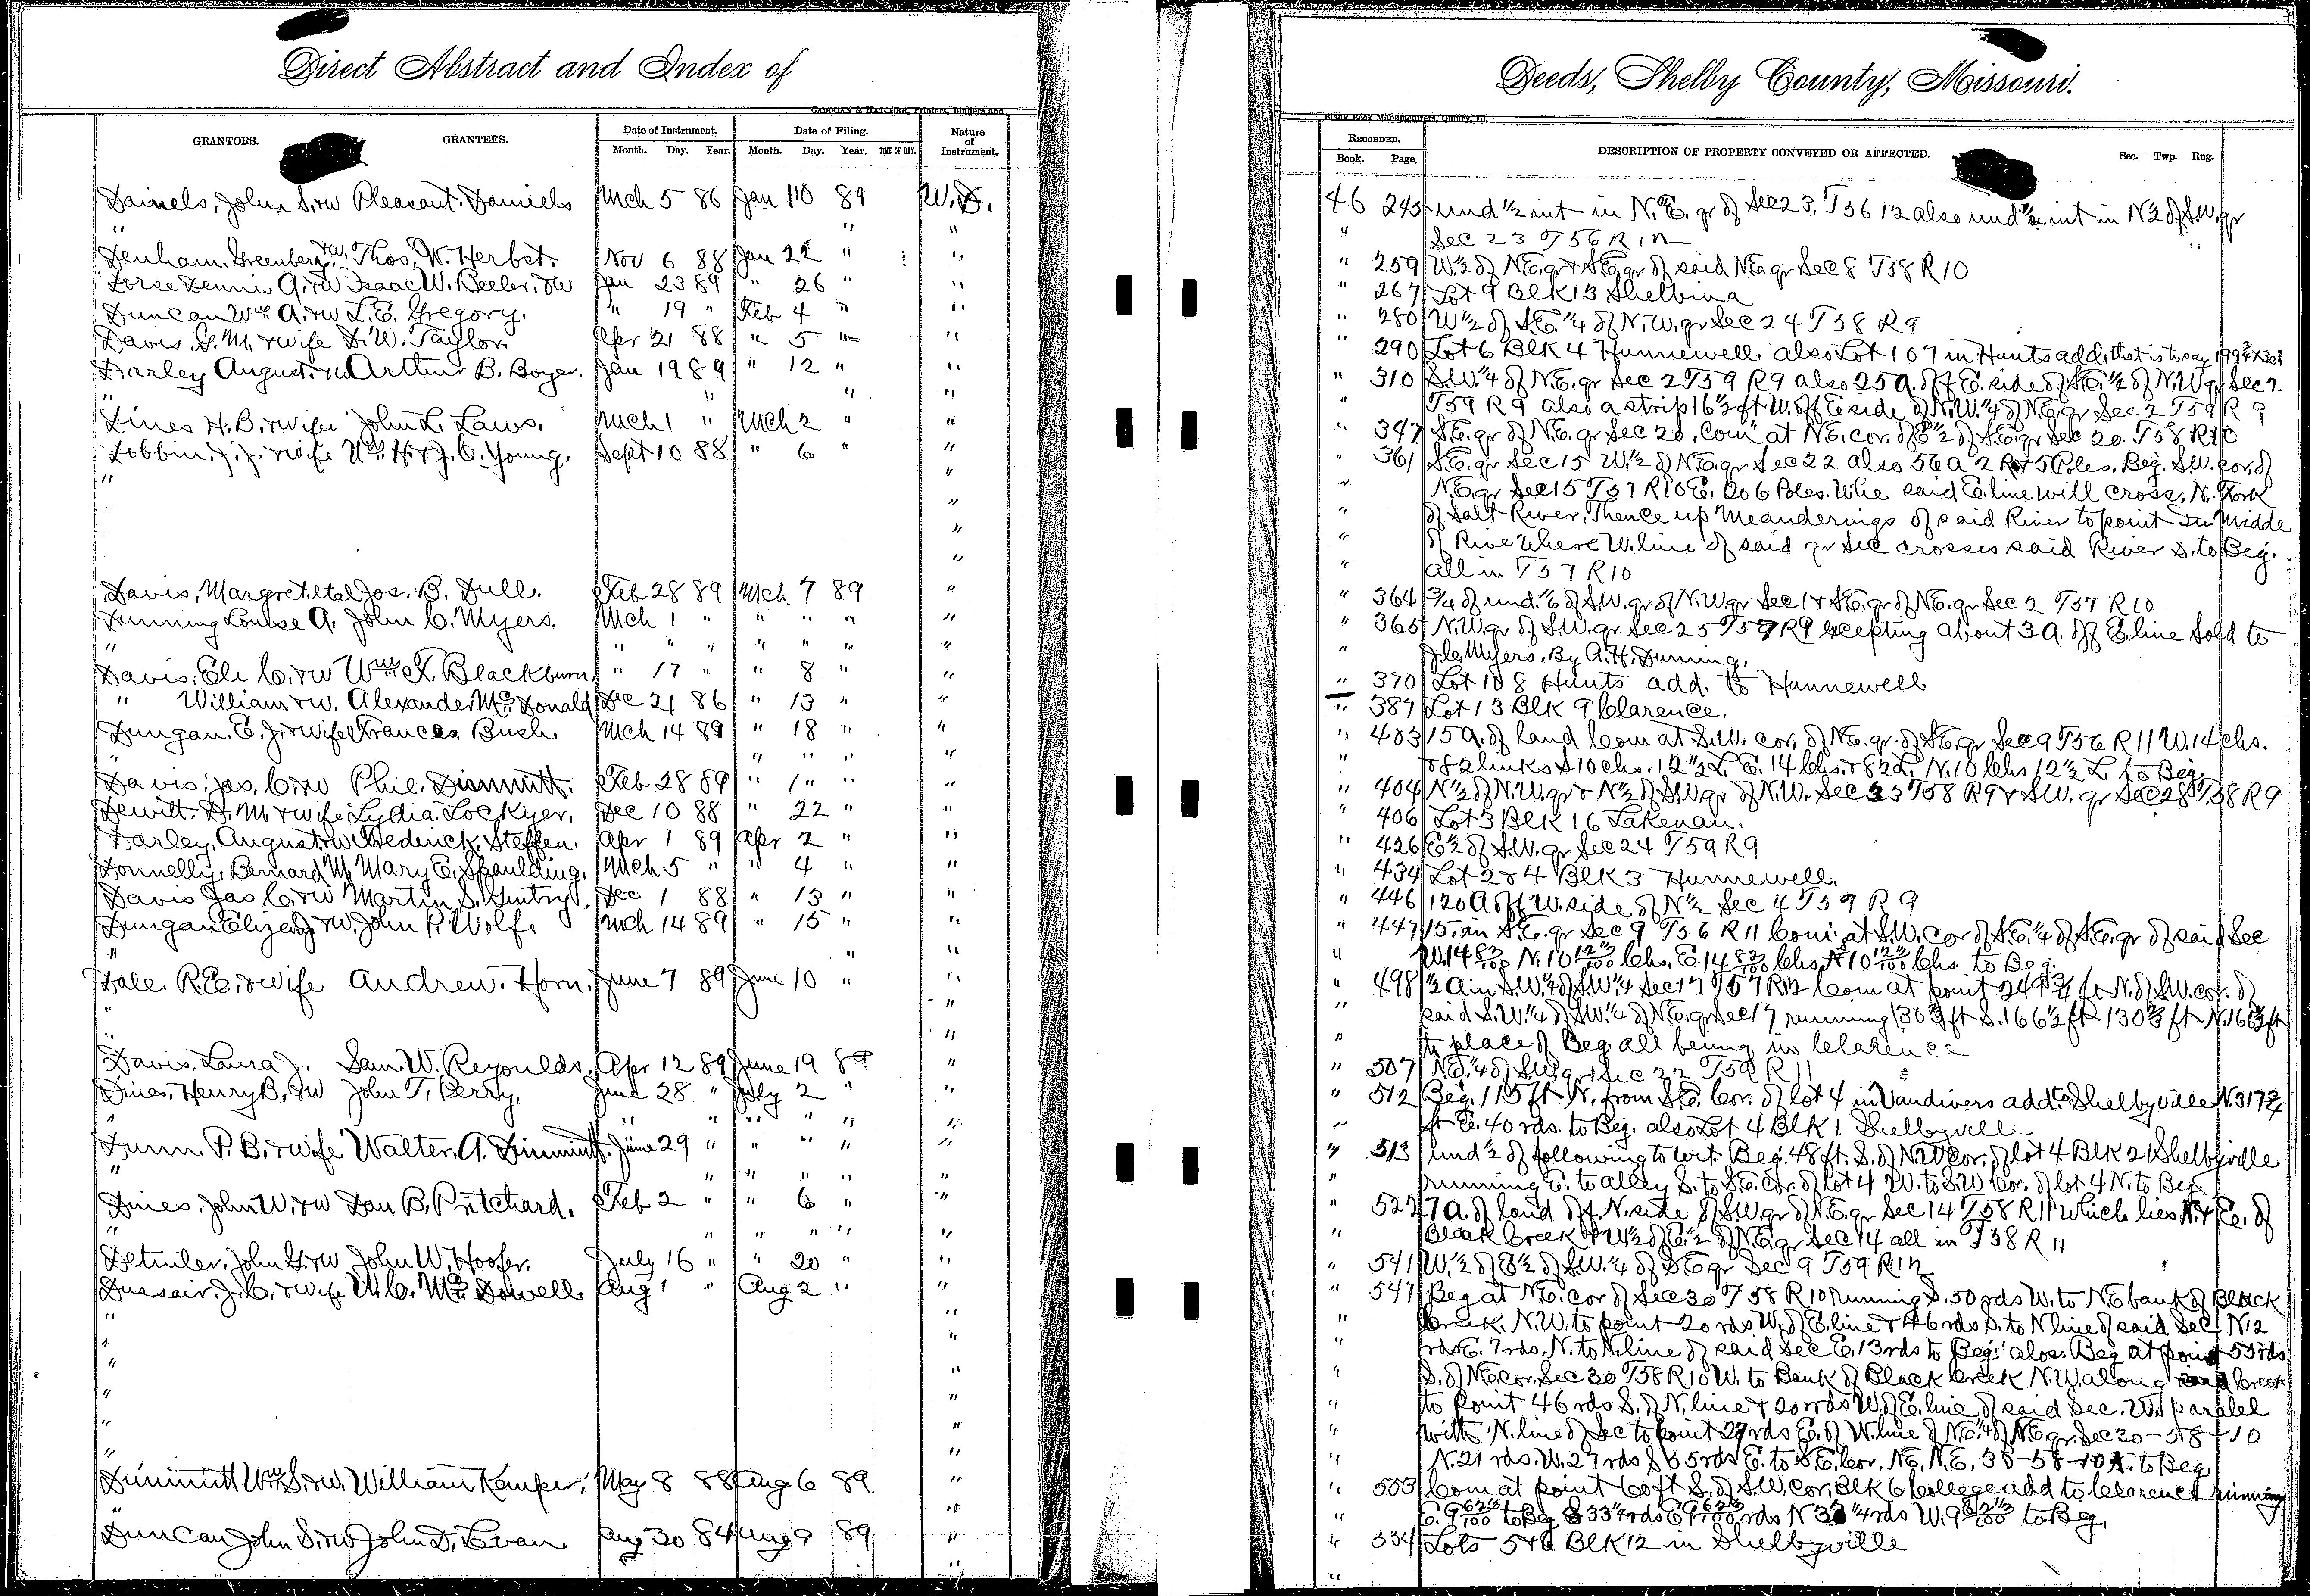 Direct Abstract and Index of
CADOGAN & HATCHER, Printers, Binders and
GRANTORS. GRANTEES. Date of Instrument. Date of Filing. Nature of Instrument.
Month. Day. Year. Month. Day. Year. TIME OF DAY.
Dainels, John S. & w Pleasant. Damiels Mch 5 86 Jan 10 89 W.D.
" " "
Denham, Greenberg & w. Thos. W. Herbst. Nov 6 88 Jan 22 " "
Dorse Dennis A. & w Isaac W. Beeler. & w Jan 23 89 " 26 " "
Duncan Wm. A. & w L. E. Gregory. " 19 " Feb 4 " "
Davis. G. M. & wife D. W. Taylor Apr 21 88 " 5 " "
Darley August. & w Arthur B. Boyer. Jan 19 89 " 12 " "
" " "
Dines H. B. & wife John L. Laws. Mch 1 " Mch 2 " "
Dobbin. J. J. & wife Wm. H. & J. C. Young. Sept 10 88 " 6 " "
" "
" "
" "
" "
Davis, Margret. et al Jos. B. Dull. Feb 28 89 Mch. 7 89 "
Dunning Louise A. John C. Myers. Mch 1 " " " " "
" " " " " " " "
Davis. Eli C. & w Wm. T. Blackburn. " 17 " " 8 " "
" William & w. Alexander McDonald Dec 21 86 " 13 " "
Dungan. E. J. & wife Frances Bush. Mch 14 89 " 18 " "
" " " " "
Davis. Jas. C. & w Phil. Dimmitt. Feb 28 89 " 1 " "
Dewitt. D. M. & wife Lydia. Lockyer. Dec 10 88 " 22 " "
Darley, August. & w Frederick. Steffen. Apr 1 89 Apr 2 " "
Donnelly, Bernard M. Mary E. Spaulding. Mch 5 " " 4 " "
Davis Jas C. & w Martin S. Gentry. Dec 1 88 " 13 " "
Dungan Eliza J & w. John P. Wolfe Mch 14 89 " 15 " "
" " "
Dale. R. E. & wife Andrew. Horn. June 7 89 June 10 " "
" "
" "
Davis. Laura J. Sam. W. Reynolds. Apr 12 89 June 19 89 "
Dines, Henry B. & w John T. Perry, June 28 " July 2 " "
" " " " " " "
Dunn. P. B. & wife Walter. A. Dimmitt. June 29 " " " " "
" " " " " "
Dines. John W. & w Dan B. Pritchard. Feb 2 " " 6 " "
" " " " " "
Detwiler. John S. & w John W. Hoofer. July 16 " " 20 " "
Dussair. J. C. & wife W. C. McDowell. Aug 1 " Aug 2 " "
" "
" "
" "
" "
" "
" "
Dimmitt Wm. S. & w. William Kemper. May 8 88 Aug 6 89 "
" "
Duncan John S. & w John D. Evan Aug 30 84 Aug 9 89 "
"
Deeds, Shelby County, Missouri.
Blank Book Manufacturers, Quincy, Ill.
RECORDED. DESCRIPTION OF PROPERTY CONVEYED OR AFFECTED. Sec. Twp. Rng.
Book. Page.
46 245 und 1/2 int in N.E. qr of Sec 23. T56 12 also und 1/2 int in N 1/2 of S.W. qr
" Sec 23 T56 R 12
" 259 W 1/2 of N.E. qr & S.E. qr of said N.E. qr Sec 8 T58 R10
" 267 Lot 9 Blk 13 Shelbina
" 280 W 1/2 of S.E. 1/4 of N.W. qr Sec 24 T58 R9
" 290 Lot 6 Blk 4 Hunnewell. also Lot 107 in Hunts add. that is to say
" 310 S.W. 1/4 of N.E. qr Sec 2 T59 R9 also 25 a. off E. side of S.E. 1/2 of N.W qr Sec 2
" T59 R9 also a strip 16 1/2 ft W. off E side of N.W. 1/4 of N.E. qr Sec 2 T59 R 9
" 347 S.E. qr of N.E. qr Sec 20. Com at N.E. cor. of E 1/2 of S.E. qr Sec 20. T58 R10
" 361 S.E. qr Sec 15 W 1/2 of N.E. qr Sec 22 also 56 a 2 R & 5 Poles. Beg. S.W. cor. of
" N.E. qr Sec 15 T57 R10 E. 206 Poles. Whe said E. line will cross. N. Fork
" of Salt River. Thence up Meanderings of said River to point in Midde
" of Rive where W. line of said qr Sec crosses said River S. to Beg.
" all in T57 R10
" 364 3/4 of und. 1/6 of S.W. qr of N.W qr Sec 1 & S.E. qr of N.E. qr Sec 2 T57 R10
" 365 N.W. qr of S.W. qr Sec 25 T59 R9 excepting about 3 A. off E. line Sold to
" J. C. Myers, By A. H. Dunning.
" 370 Lot 108 Hunts add. to Hunnewell
" 387 Lot 13 Blk 9 Clarence.
" 403 15 a. of land Com at S.W. cor. of N.E. qr. of S.E. qr Sec 9 T56 R11 W. 14 chs.
" & 82 links S 10 chs. 12 1/2 L. E. 14 Chs. & 82 L. N. 10 Chs 12 1/2 L. to Beg.
" 404 N 1/2 of N.W. qr & N 1/2 of S.W qr of N.W. Sec 33 T58 R9 & S.W. qr Sec 28 T58 R9
" 406 Lot 3 Blk 16 Lakenan.
" 426 E 1/2 of S.W. qr Sec 24 T59 R9
" 434 Lot 2 & 4 Blk 3 Hunnewell.
" 446 120 A off W. side of N 1/2 Sec 4 T59 R9
" 447 15. in S.E. qr Sec 9 T56 R11 Com. at S.W. cor of S.E. 1/4 of S.E. qr of said Sec
" W. 14 83/100 N. 10 12 1/2/100 Chs. E. 14 83/100 Chs. S 10 12 1/2/100 Chs. to Beg.
" 498 1/2 a in S.W. 1/4 of S.W. 1/4 Sec 17 T57 R12 Com at point 249 3/4 ft N. of S.W. cor. of
" said S.W. 1/4 of S.W. 1/4 of N.E. qr Sec 17 running 130 2/3 ft S. 166 1/2 ft 130 2/3 ft N. 166 1/2 ft
" to place of Beg. all being in Clarence
" 507 N.E. 1/4 of S.W. qr Sec 22 T59 R11
" 512 Beg. 115 ft. N. from S.E. Cor. of lot 4 in Vandivers add. to Shelbyville N. 317 3/4
" ft E. 40 rds. to Beg. also Lot 4 Blk 1. Shelbyville
" 513 und 1/2 of following to wit. Beg. 48 ft. S. of N.W Cor. of lot 4 Blk 21 Shelbyville
" running E. to alley S. to S.E. Cor. of lot 4 W. to S.W Cor. of lot 4 N. to Beg.
" 522 7 a. of land off N. side of S.W. qr of N.E. qr Sec 14 T58 R11 which lies N. & E. of
" Black Creek & W 1/2 of E 1/2 of N.E. qr Sec 14 all in T58 R 11
" 541 W. 1/2 of E 1/2 of S.W. 1/4 of S.E. qr Sec 9 T59 R12
" 547 Beg at N.E. cor of Sec 30 T58 R10 running S. 50 rds W. to N.E bank of Black
" Creek. N.W. to point 20 rds W. of E. line & 46 rds S. to N line of said Sec N. 2
" rds E. 7 rds. N. to N. line of said Sec E. 13 rds to Beg. alos. Beg at point 53 rds
" S. of N.E. cor. Sec 30 T58 R10 W. to Bank of Black Creek N.W. along said Creek
" to point 46 rds S. of N. line & 20 rds W. of E. line of said Sec. W. paralel
" with N. line of Sec to point 27 rds E. of W. line of N.E. 1/4 of N.E. qr. Sec 30-58-10
" N. 21 rds. W. 27 rds S 65 rds E. to S.E. Cor. N.E. N.E. 30-58-10 N. to Beg.
" 553 Com at point 60 ft S. of S.W. cor. Blk 6 College add to Clarence running
" to Beg S 33 1/4 rds rds N 33 1/4 rds W. to Beg.
" 554 Lots 5 & 6 Blk 12 in Shelbyville
"